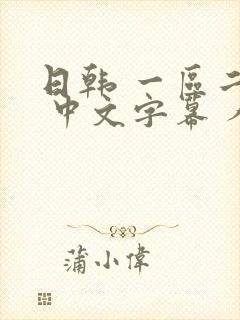 日韩 一區二
中文字幕
蒲小偉